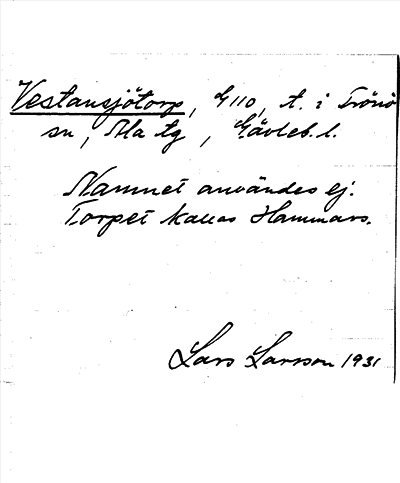 Vestansjötorp, G110, t. i Trönö
sn, Ala tg, Gävleb. l.
Namnet användes ej.
Torpet kallas Hammars.
Lars Larsson 1931